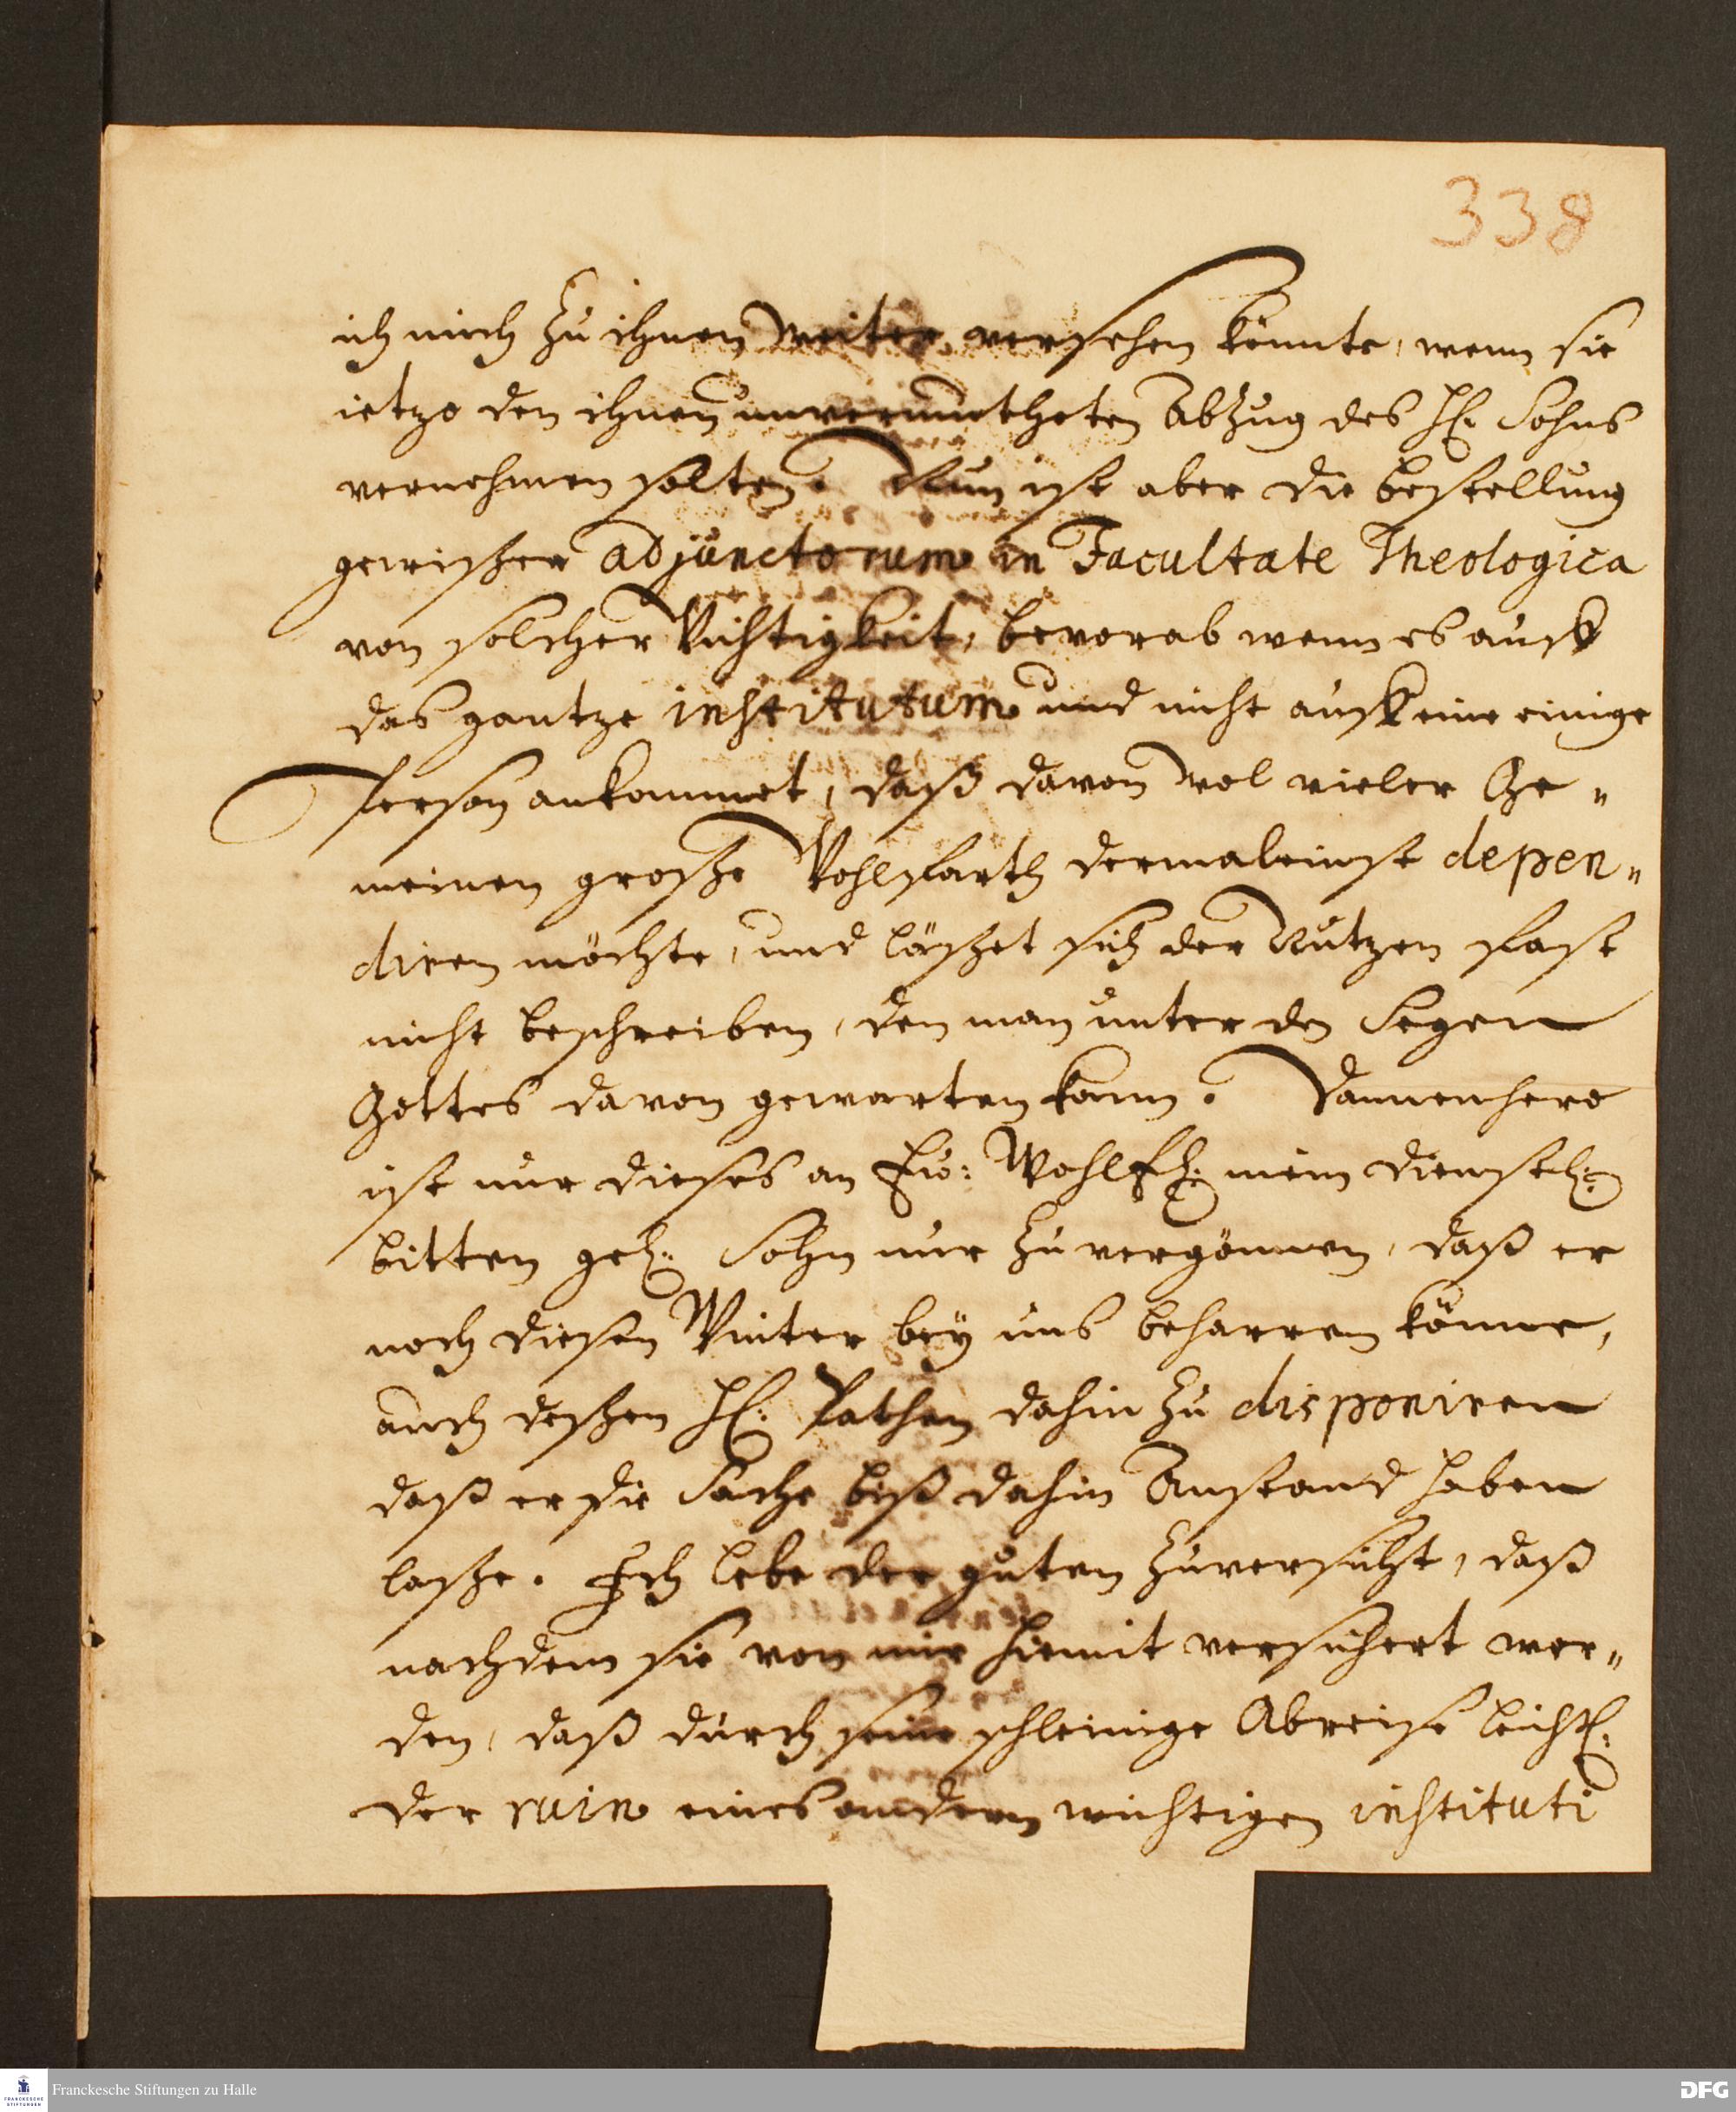 338
ich mich zu ihnen weiter versehen könnte, wenn sie
ietzo den ihnen unvermutheten Abzug des H. Sohns
vernehmen solten. Nun ist aber die bestellung
gewisser adjunctorum in Facultate Theologica
von solcher Wichtigkeit, bevorab wenn es auff
das gantze institutum und nicht auff eine einige
Person ankommet, daß davon wol vieler Ge-
meinen grosse Wohlfarth dermaleinst depen-
diren möchte, und lässet sich der Nutzen fast
nicht beschreiben, den man unter dem Segen
Gottes davon gewarten kann. Dannenhero
ist nur dieses an Ew: Wohlehrw. mein dienstl.
bitten gel. Sohn nur zu vergönnen, daß er
noch diesen Winter bey uns beharren könne,
auch dessen H. Pathen dahin zu disponiren
daß er die Sache biß dahin Anstand haben
lasse. Ich lebe der guten Zuversicht, daß
nachdem sie von mir hiemit versichert wer-
den, daß durch seine schleinige Abreise leichtl.
der ruin eines andern wichtigen instituti
Franckesche Stiftungen zu Halle
FRANCKESCHE STIFTUNGEN
DFG